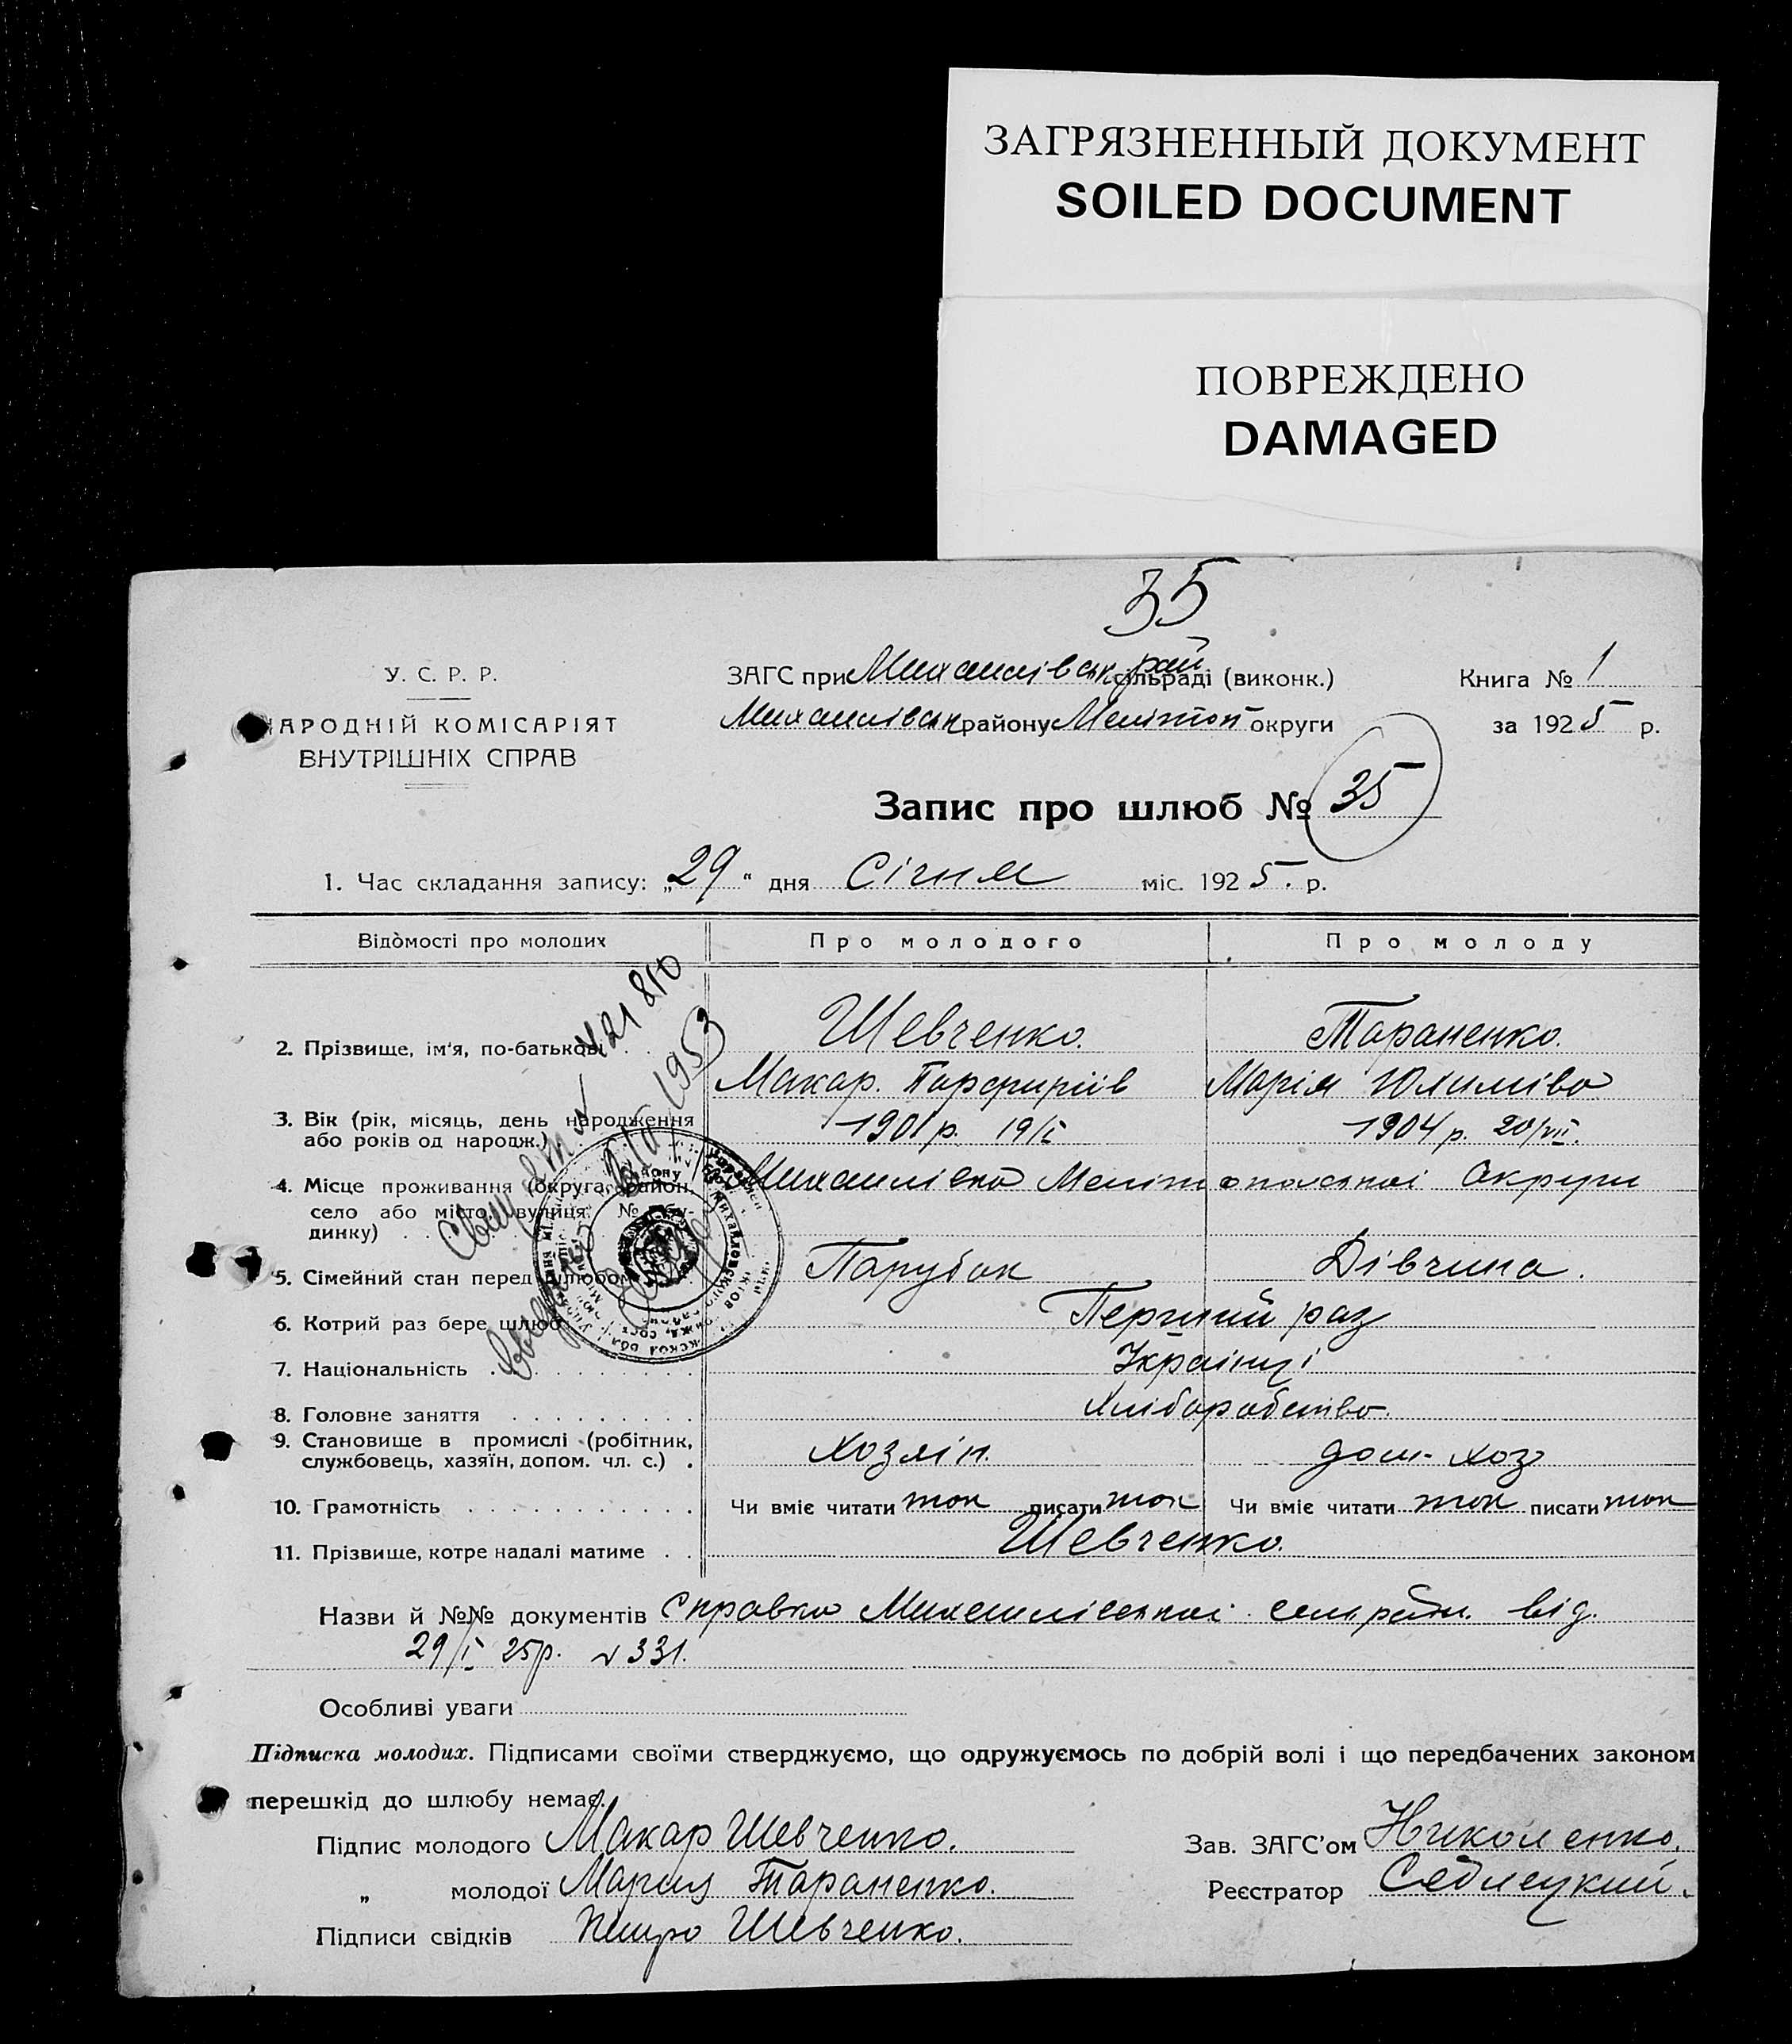 ЗАГРЯЗНЕННЫЙ ДОКУМЕНТ
SOILED DOCUMENT
ПОВРЕЖДЕНО
DAMAGED
35
У. С. Р. Р.
НАРОДНІЙ КОМІСАРІЯТ
ВНУТРІШНІХ СПРАВ
ЗАГС при Михайлівськ. рай сільраді (виконк.)
Михайлівськ району Мелітоп округи
Книга № 1
за 1925 р.
Запис про шлюб № 35
1. Час складання запису: „29“ дня Січня міс. 1925. р.
Відомості про молодих Про молодого Про молоду
2. Прізвище, ім'я, по-батькові Шевченко. Тараненко.
Макар. Парфиріів Марія Юхиміва
3. Вік (рік, місяць, день народження або років од народж.) 1901 р. 19/I 1904 р. 20/VII.
4. Місце проживання (округа, район, Михайлівка Мелітопольскої Округи
село або місто, вулиця, № бу-
динку)
5. Сімейний стан перед шлюбом Парубок Дівчина.
6. Котрий раз бере шлюб Перший раз
7. Національність Українці
8. Головне заняття Хліборобство.
9. Становище в промислі (робітник, службовець, хазяїн, допом. чл. с.) Хозяін. дом. хоз
10. Грамотність Чи вміє читати так писати так Чи вміє читати так писати так
11. Прізвище, котре надалі матиме Шевченко.
N 21810
1953
Назви й №№ документів Справка Михайлівскої сельради. від.
29/I 25р. N 331.
Особливі уваги
Підписка молодих. Підписами своїми стверджуємо, що одружуємось по добрій волі і що передбачених законом
перешкід до шлюбу немає.
Підпис молодого Макар Шевченко.
„ молодої Мария Тараненко.
Підписи свідків Петро Шевченко.
Зав. ЗАГС'ом Николенко.
Реєстратор Седлецкий.